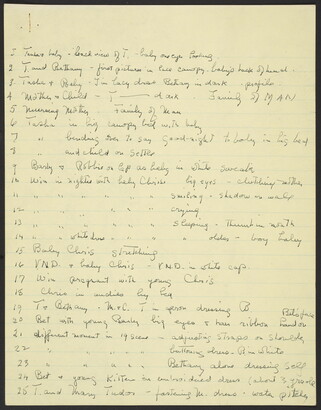 1 Tasha's baby - back view of T. - baby's eye looking
2 T. and Bethany - first picture in lace canopy, baby's back of head
3 Tasha & Baby - T in lacy dress Bethany in dark - profile
4 Mother & Child - T dark Family of MAN
5 Nursing Mother Family of Man
6 Tasha in big canopy bed with baby
7 " bending over to say good-night to baby in big bed
8 " and child on settle
9 Becky & Robbie on lap as baby in white sweater
10 Win in nightie with baby Chris big eyes - clutching mother
11 " " " " " smiling - shadow on wall
12 " " " " " crying
13 " " " " " sleeping - thumb in mouth
14 " " white dress " " older - bony baby
15 Baby Chris stretching
16 V.N.D. & baby Chris - V.N.D. in white cap
17 Win pregnant with young Chris
18 Chris in undies by leg
19 T & Bethany - M & C T in gown dressing B
20 Bet with young Becky big eyes & hair ribbon
21 different moment in 19 scene - adjusting straps on shoulder
22 " " " " buttoning dress - B in white
23 " " " " Bethany alone dressing self
24 Bet & young Kitten in embroidered dress (about 3 years old)
25 T. and Mary Tudor - fastening M. dress - water pitcher